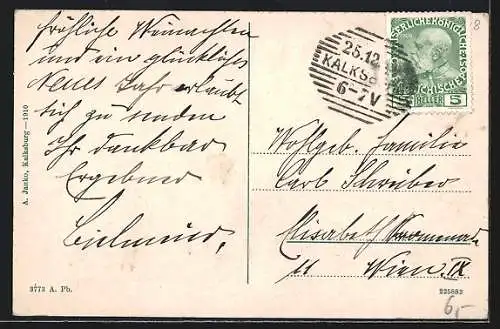 fröhliche Weinachten
und ein glückliches
Neues Jahr erlaubt
sich zu senden
Ihr dankbar
Ergebner
A. Janko, Kalksburg—1910
3773 A. Pb.
25.12
KALKSB
6-7V
KAISERLICHE KÖNIGLICHE
HELLER 5
8
Wohlgeb. Familie
Carl Schreiber
Elisabeth
11 Wien, IX
225883
6,-